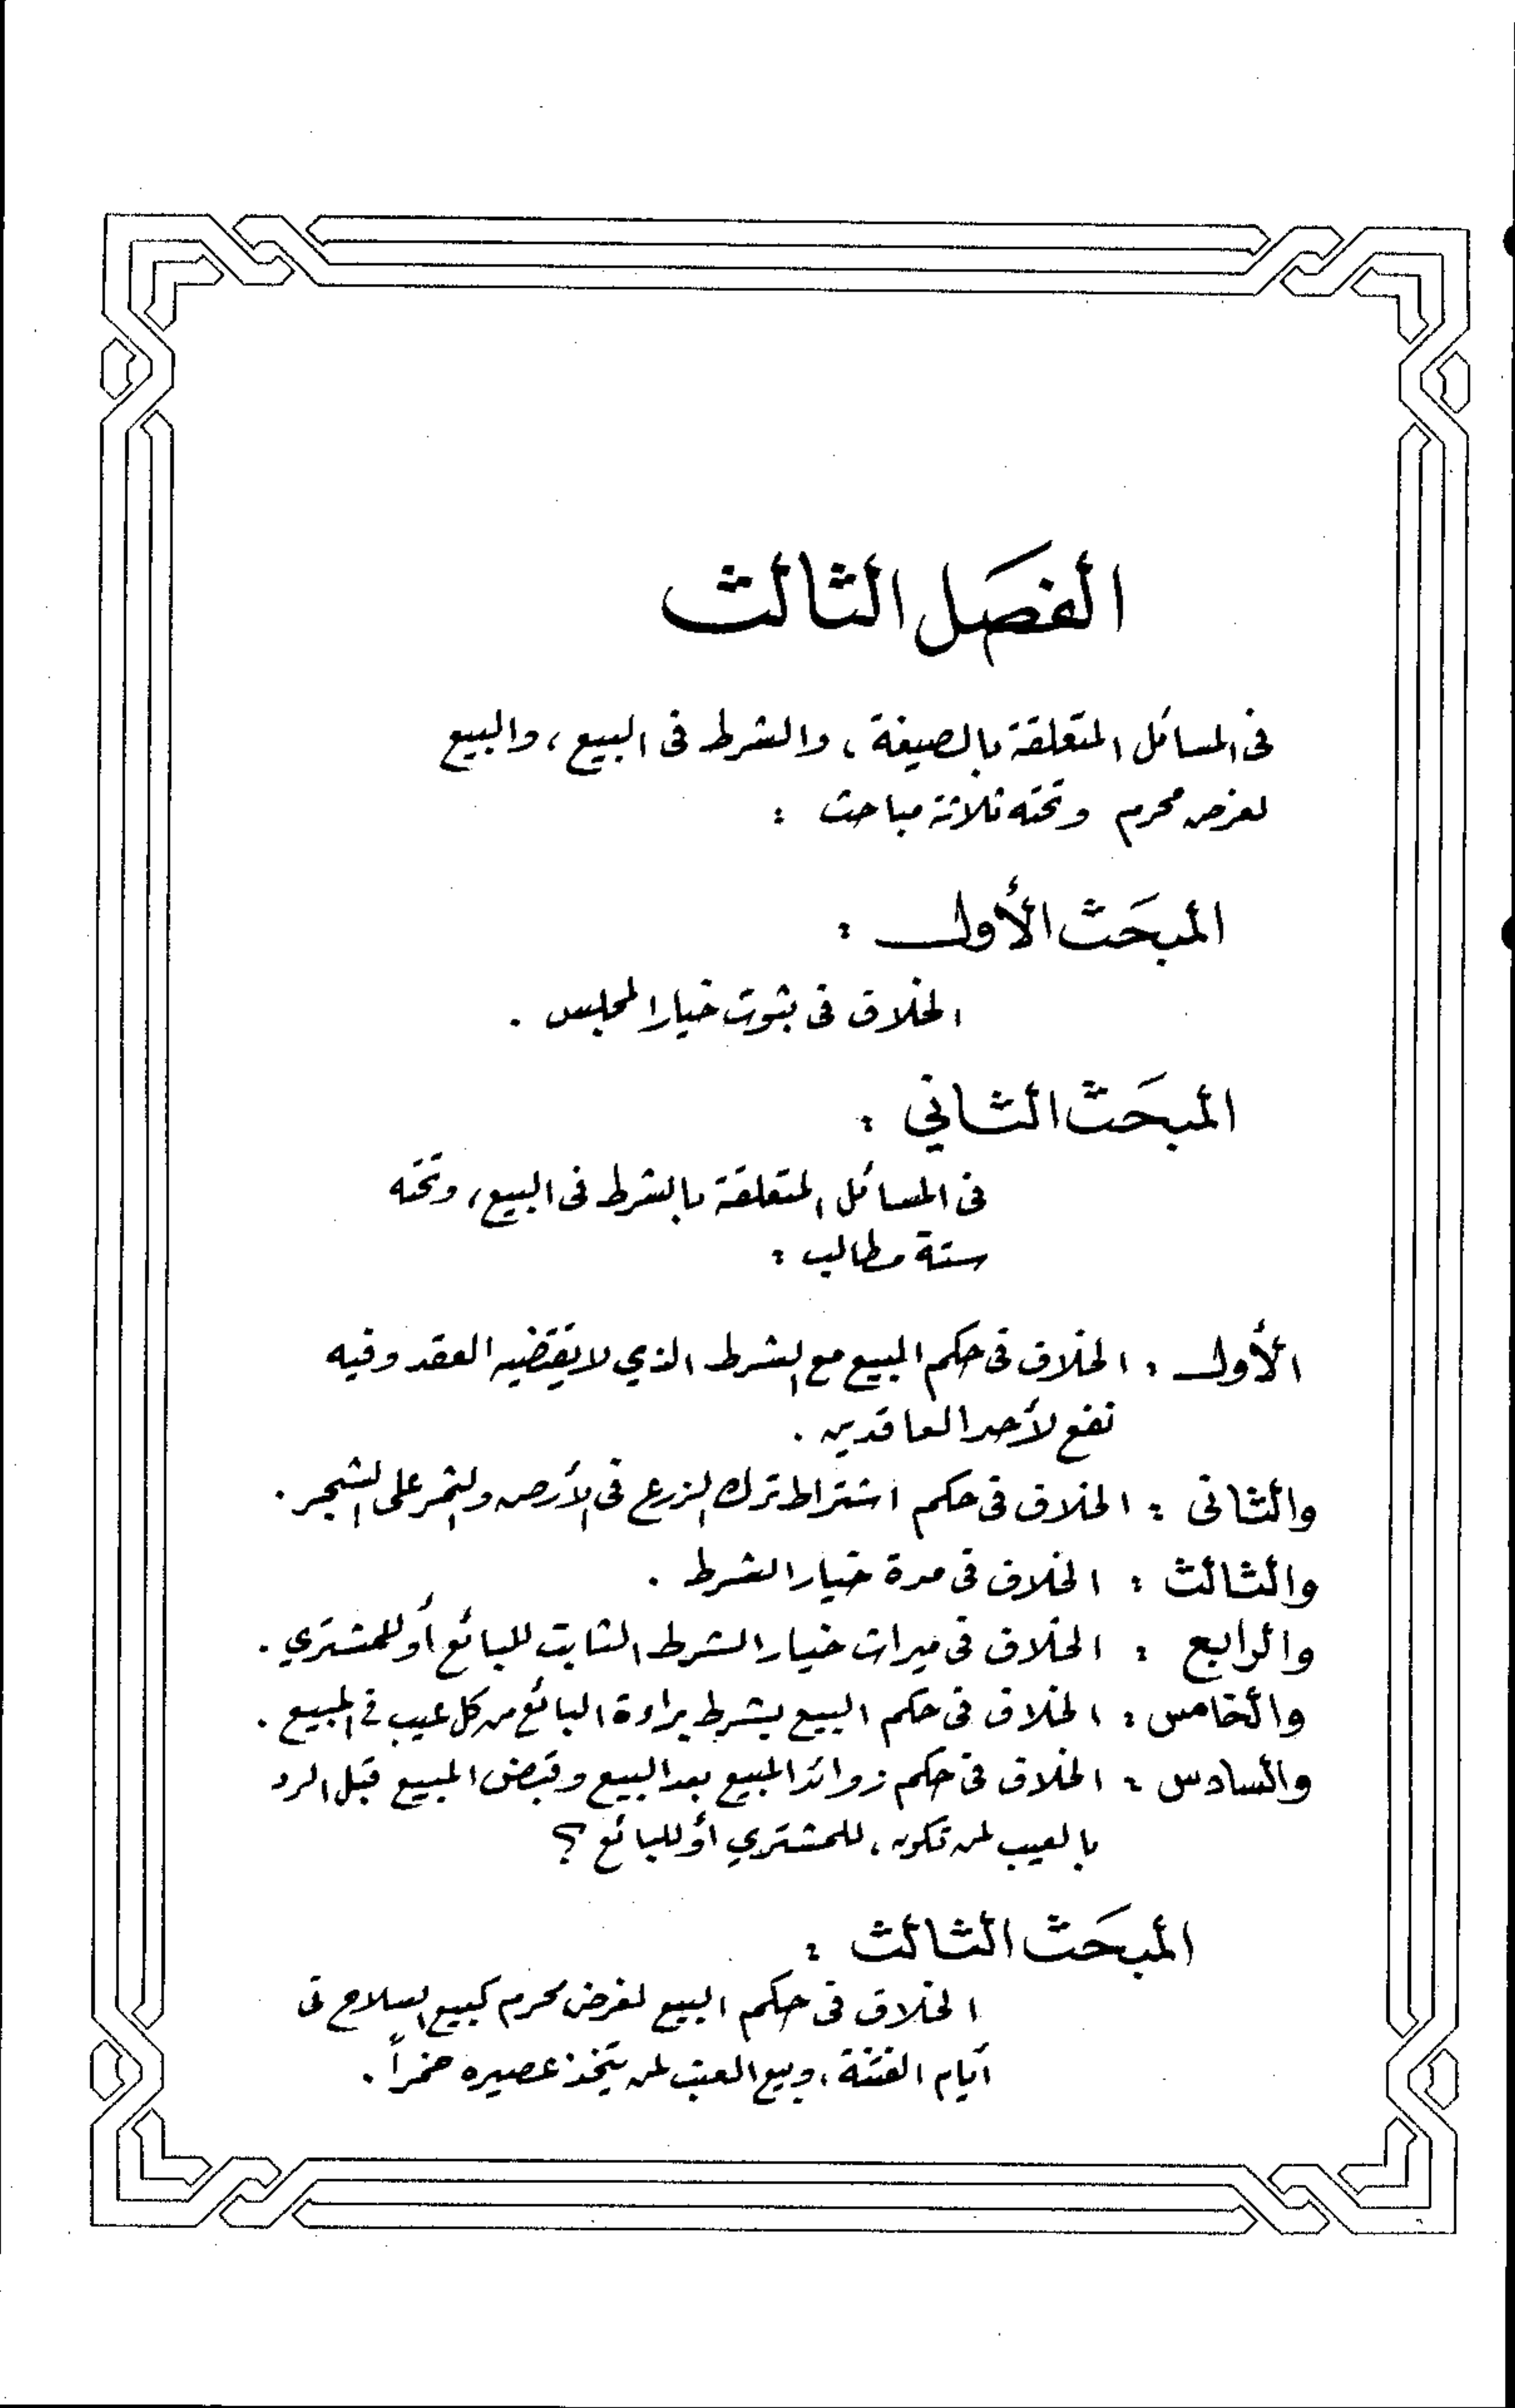 الفصَل الثالث
فى المسائل المتعلقة بالصيغة ، والشرط فى البيع ، والبيع
لغرض محرم وتحته ثلاثة مباحث :
المبحَث الأول :
الخلاف فى ثبوت خيار المجلس .
المبحَث الثاني :
فى المسائل المتعلقة بالشرط فى البيع ، وتحته
ستة مطالب :
الأول : الخلاف فى حكم البيع مع الشرط الذي لا يقتضيه العقد وفيه
نفع لأحد العاقدين .
والثانى : الخلاف فى حكم اشتراط ترك الزرع فى الأرض والثمر على الشجر .
والثالث : الخلاف فى مدة خيار الشرط .
والرابع : الخلاف فى ميراث خيار الشرط الثابت للبائع أو للمشتري .
والخامس : الخلاف فى حكم البيع بشرط براءة البائع من كل عيب فى المبيع .
والسادس : الخلاف فى حكم زوائد المبيع بعد البيع وقبض المبيع قبل الرد
بالعيب لمن تكون ، للمشتري أو للبائع ؟
المبحَث الثالث :
الخلاف فى حكم البيع لغرض محرم كبيع السلاح فى
أيام الفتنة ، وبيع العنب لمن يتخذ عصيره خمراً .